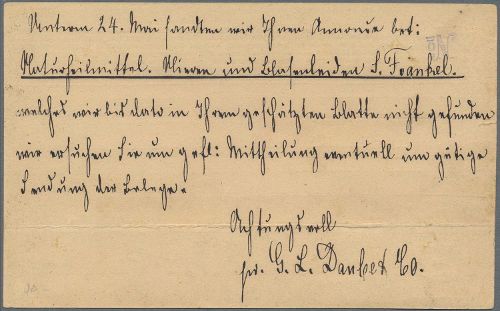 Unterm 24. Mai sandten wir Ihnen Annonce bet:
Naturheilmittel. Nieren und Blasenleiden S. Frankel.
welches wir bis dato in Ihrem geschätzten Blatte nicht gefunden
wir ersuchen Sie um gefl: Mittheilung eventuell um gütige
Sendung der Belege.
Achtungsvoll
G. L. Daube & Co.